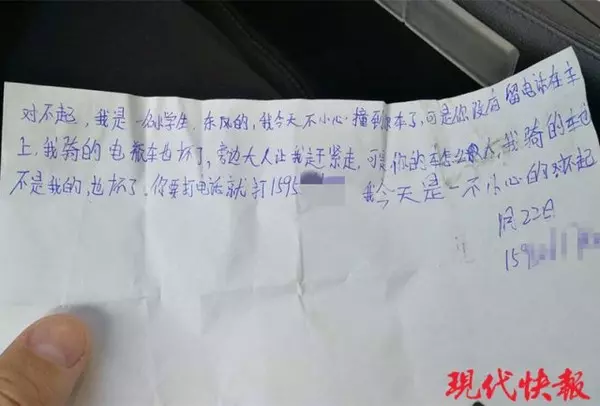 对不起，我是一小学生，东风的，我今天不小心撞到你车了，可是你没有留电话在车
上，我骑的电瓶车也坏了，旁边大人让我赶紧走，可是你的车怎么办，我骑的车也
不是我的，也坏了。你要打电话就打1595
我今天是一不小心的对不起
22日
159
现代快報